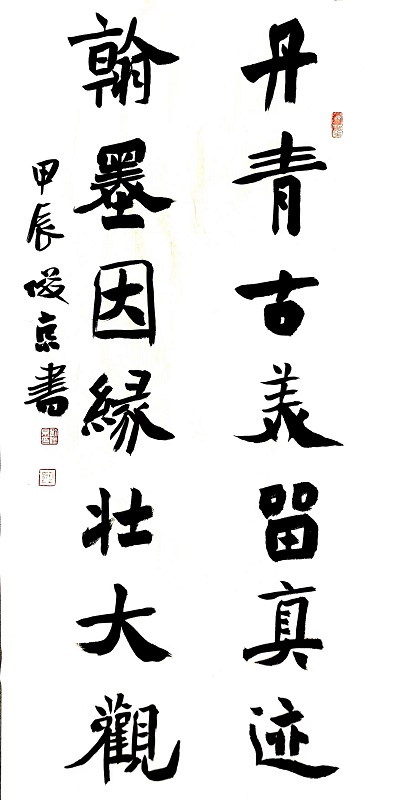 丹青古美留真迹
翰墨因緣壯大觀
甲辰俊京書